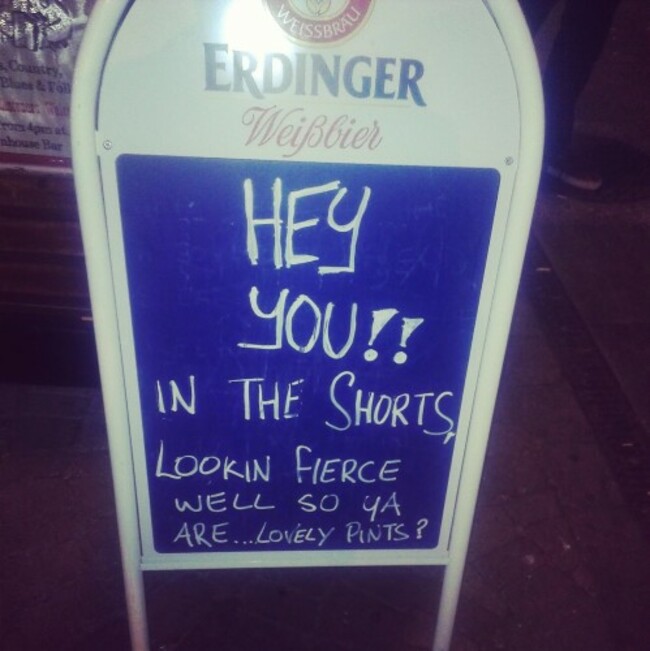 WEISSBRÄU
ERDINGER
Weißbier
HEY
YOU!!
IN THE SHORTS,
LOOKIN FIERCE
WELL SO YA
ARE...LOVELY PINTS?
Country,
Blues & Folk